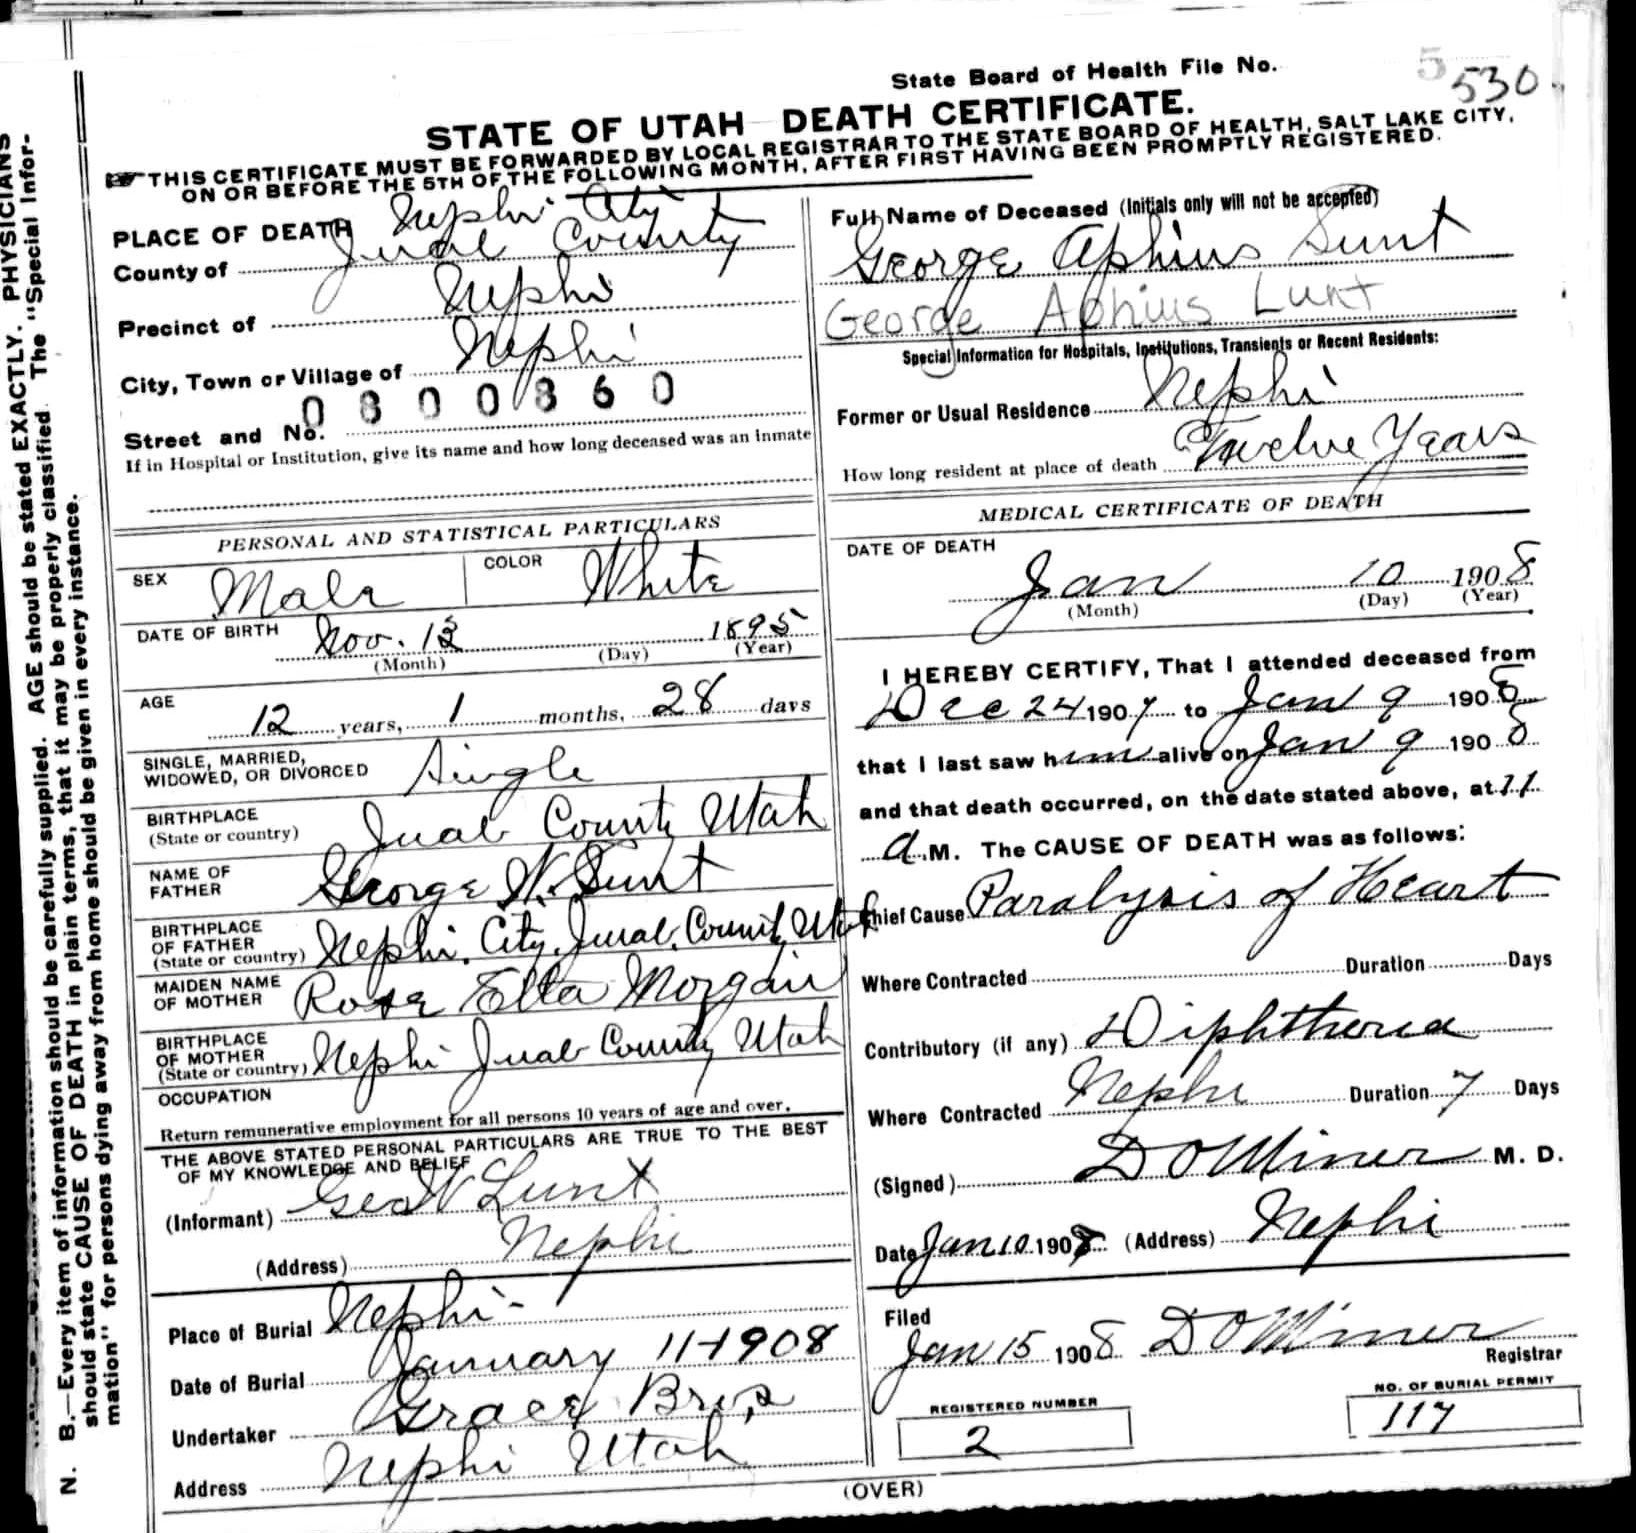 State Board of Health File No. 5
530
STATE OF UTAH DEATH CERTIFICATE.
THIS CERTIFICATE MUST BE FORWARDED BY LOCAL REGISTRAR TO THE STATE BOARD OF HEALTH, SALT LAKE CITY,
ON OR BEFORE THE 5TH OF THE FOLLOWING MONTH, AFTER FIRST HAVING BEEN PROMPTLY REGISTERED.
PLACE OF DEATH Nephi City
County of Juab County
Precinct of Nephi
City, Town or Village of Nephi
0800860
Street and No.
If in Hospital or Institution, give its name and how long deceased was an inmate
PERSONAL AND STATISTICAL PARTICULARS
SEX Male COLOR White
DATE OF BIRTH Nov. 13 1895
(Month) (Day) (Year)
AGE 12 years, 1 months, 28 days
SINGLE, MARRIED,
WIDOWED, OR DIVORCED Single
BIRTHPLACE
(State or country) Juab County Utah
NAME OF
FATHER George W. Lunt
BIRTHPLACE
OF FATHER
(State or country) Nephi. City. Juab. County Utah
MAIDEN NAME
OF MOTHER Rose Ella Morgan
BIRTHPLACE
OF MOTHER
(State or country) Nephi Juab County Utah
OCCUPATION
Return remunerative employment for all persons 10 years of age and over.
THE ABOVE STATED PERSONAL PARTICULARS ARE TRUE TO THE BEST
OF MY KNOWLEDGE AND BELIEF
(Informant) Geo W Lunt
(Address) Nephi
Place of Burial Nephi-
Date of Burial January 11-1908
Undertaker Grace Bros
Address Nephi Utah
Full Name of Deceased (Initials only will not be accepted)
George Aphius Lunt
George Aphius Lunt
Special Information for Hospitals, Institutions, Transients or Recent Residents:
Former or Usual Residence Nephi
How long resident at place of death Twelve Years
MEDICAL CERTIFICATE OF DEATH
DATE OF DEATH
Jan 10 1908
(Month) (Day) (Year)
I HEREBY CERTIFY, That I attended deceased from
Dec 24 1907 to Jan 9 1908
that I last saw him alive on Jan 9 1908
and that death occurred, on the date stated above, at 11
a.M. The CAUSE OF DEATH was as follows:
Chief Cause Paralysis of Heart
Where Contracted Duration Days
Contributory (if any) Diphtheria
Where Contracted Nephi Duration 7 Days
(Signed) D O Miner M. D.
Date Jan 10 1908 (Address) Nephi
Filed
Jan 15 1908 D O Miner
Registrar
REGISTERED NUMBER
2
NO. OF BURIAL PERMIT
117
(OVER)
N. B.—Every item of information should be carefully supplied. AGE should be stated EXACTLY. PHYSICIANS
should state CAUSE OF DEATH in plain terms, that it may be properly classified. The "Special Infor-
mation" for persons dying away from home should be given in every instance.